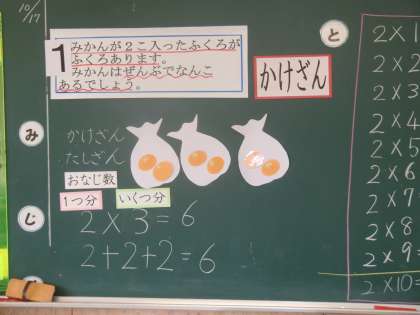 10/17
1 みかんが2こ入ったふくろが
ふくろあります。
みかんはぜんぶでなんこ
あるでしょう。
かけざん
と
み
じ
かけざん
たしざん
おなじ数
1つ分
いくつ分
2×3=6
2+2+2=6
2×1
2×2
2×3
2×4
2×5
2×6
2×7
2×8
2×9=
2×10=